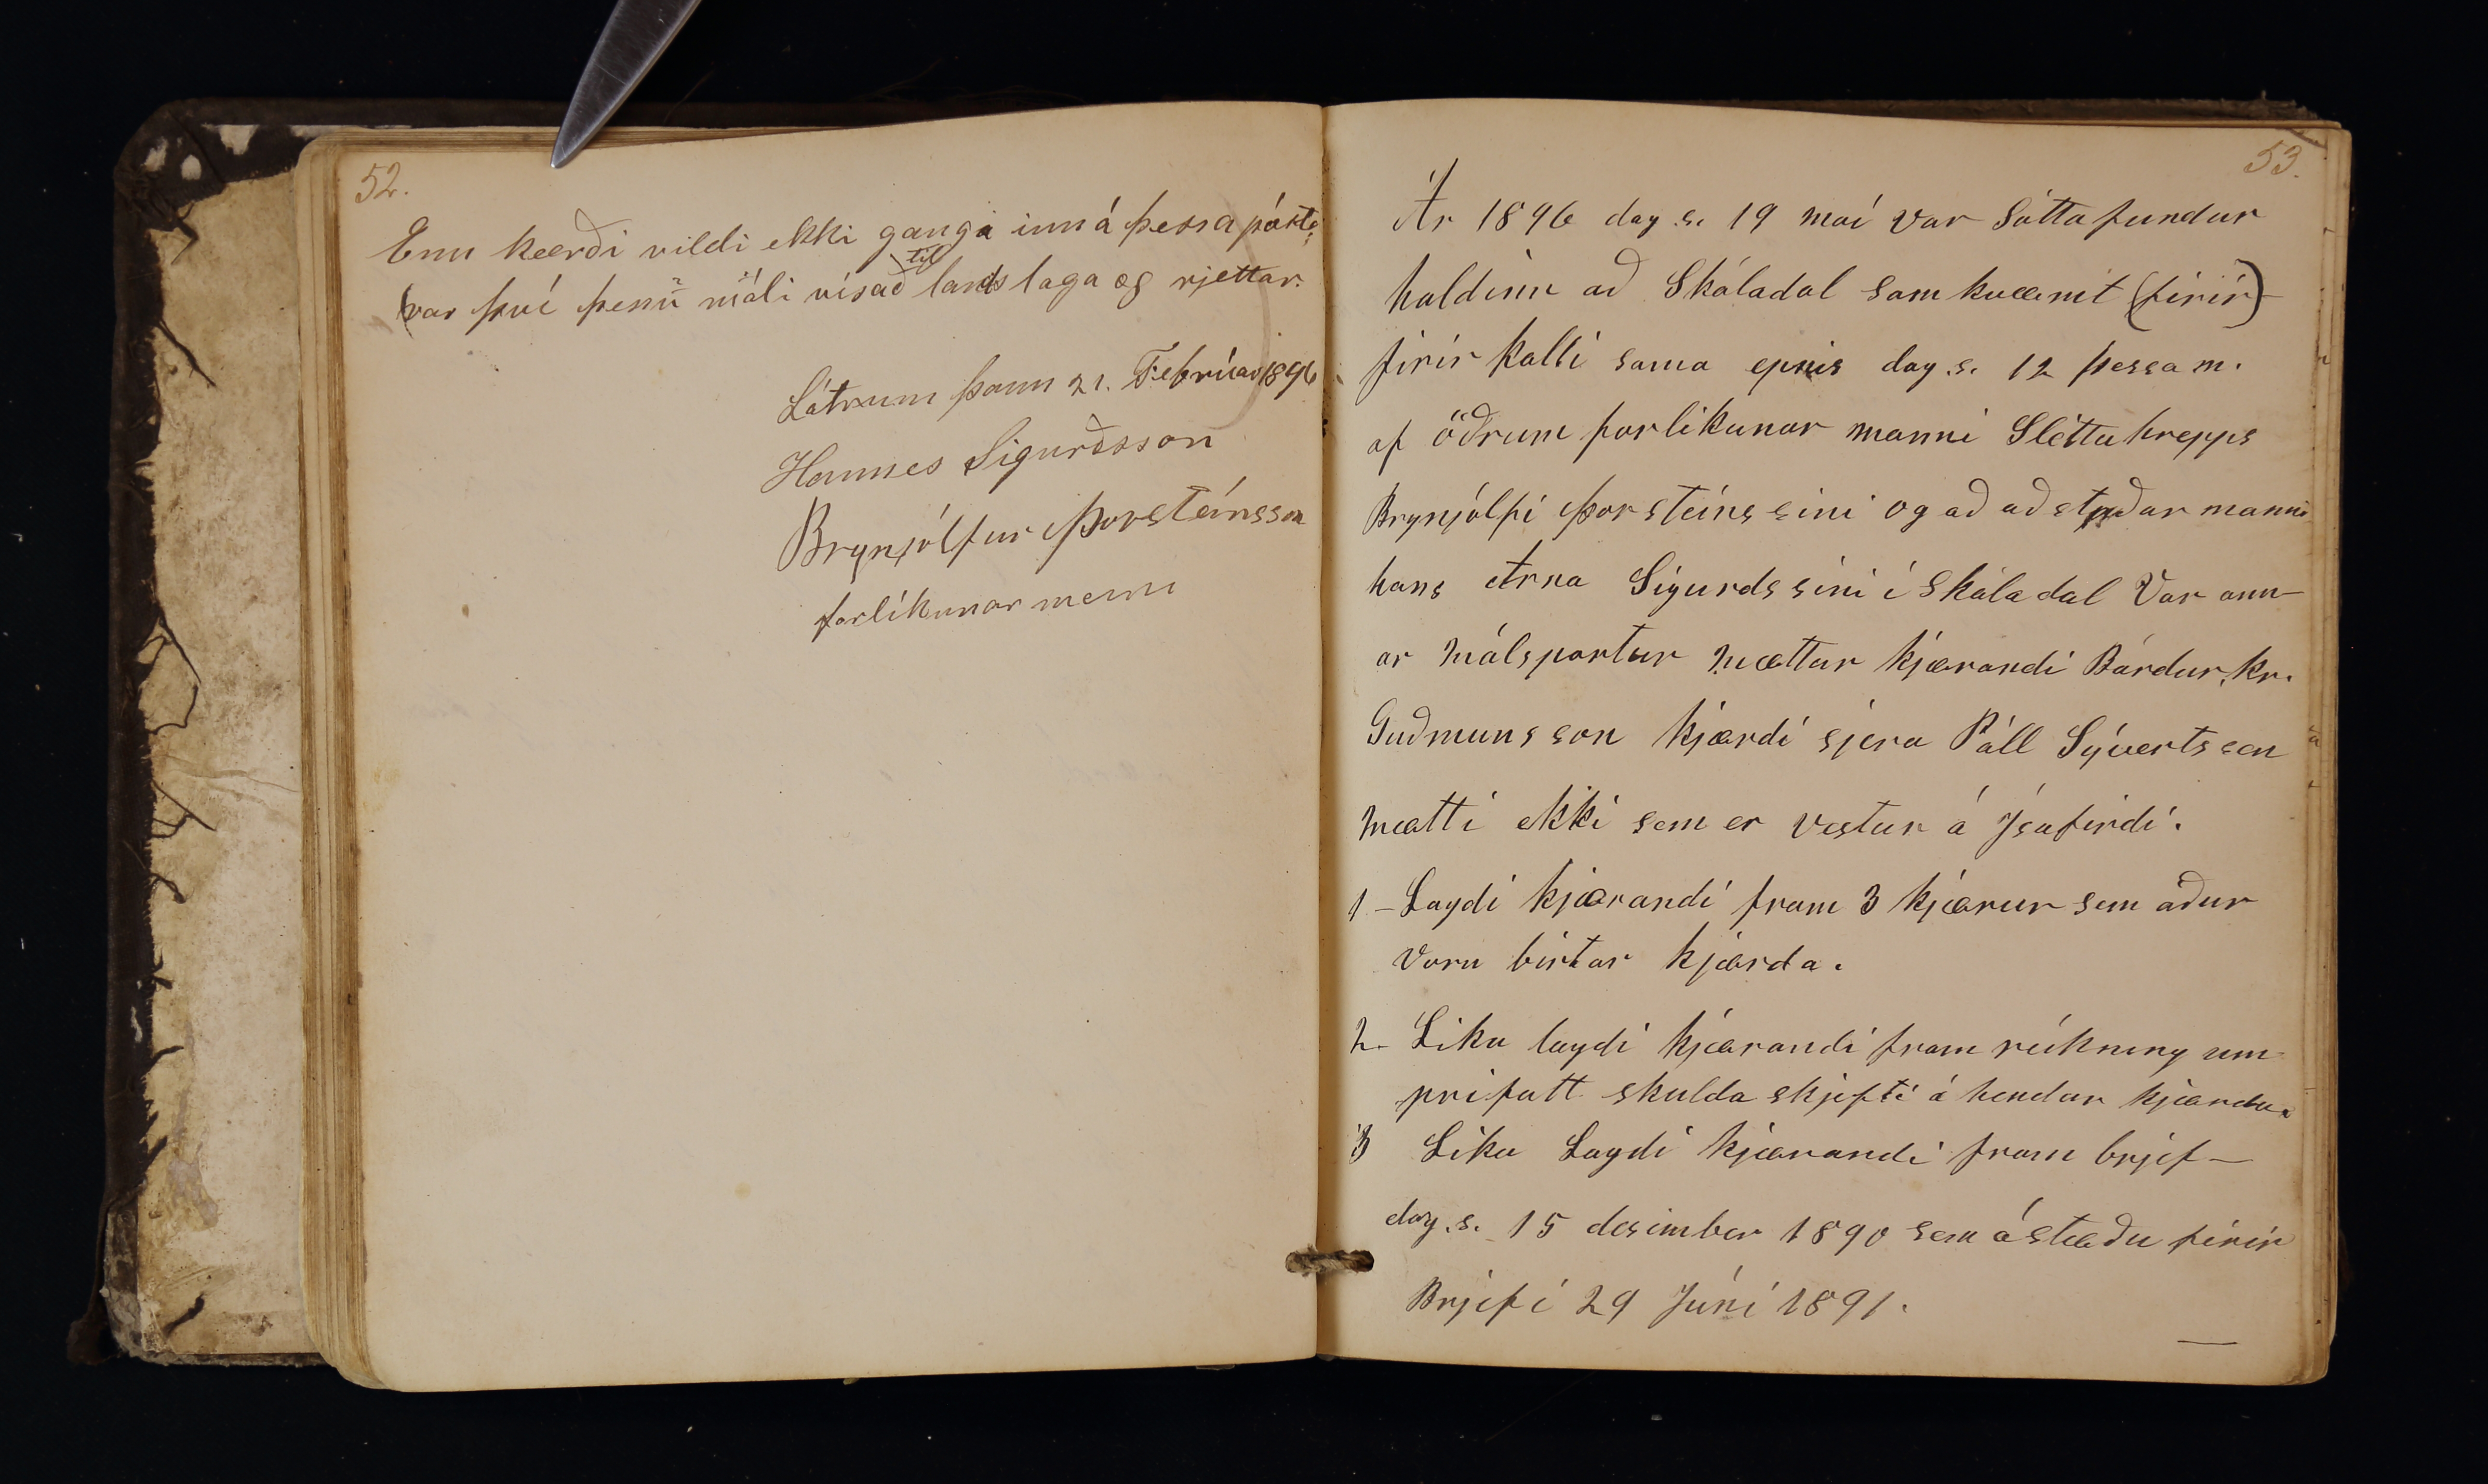 52.
Enn kærði vildi ekki ganga inná þessa pósta;
var því þenū máli vísað til landslaga og rjettar.
Látrum þann 21. Febrúar 1896
Hannes Sigurðsson
Brynjólfur Þorsteinsson
forlíkunar menn
53.
Ár 1896 dag.s. 19 maí var Sáttafundur
haldinn að Skáladal samkvæmt (firir)
firirkalli sama epnis dag.s. 12 þessa m.
af öðrum forlikunar manni Sléttuhrepps
Brynjólfi Þorsteinssini og að aðstoðar manni
hans Arna Sigurdssini í Skáladal Var ann-
ar málspartur mættur kjærandi Bárdur. kr.
Guðmunsson kjærdi sjera Páll Sývertssen
mætti ekki sem er vestur á Ísafirdi.
1 - Lagdi kjærandi fram 3 kjærur sem aður
voru birtar kjærda.
2- Lika lagdi kjærandi fram reikning um
prifatt skulda skjifti á hendur kjærda.
3 Lika Lagdi kjærandi fram brjef-
dag.s. 15 desimber 1890 sem ástæðu firir
Brjefi 29 Júní 1891.